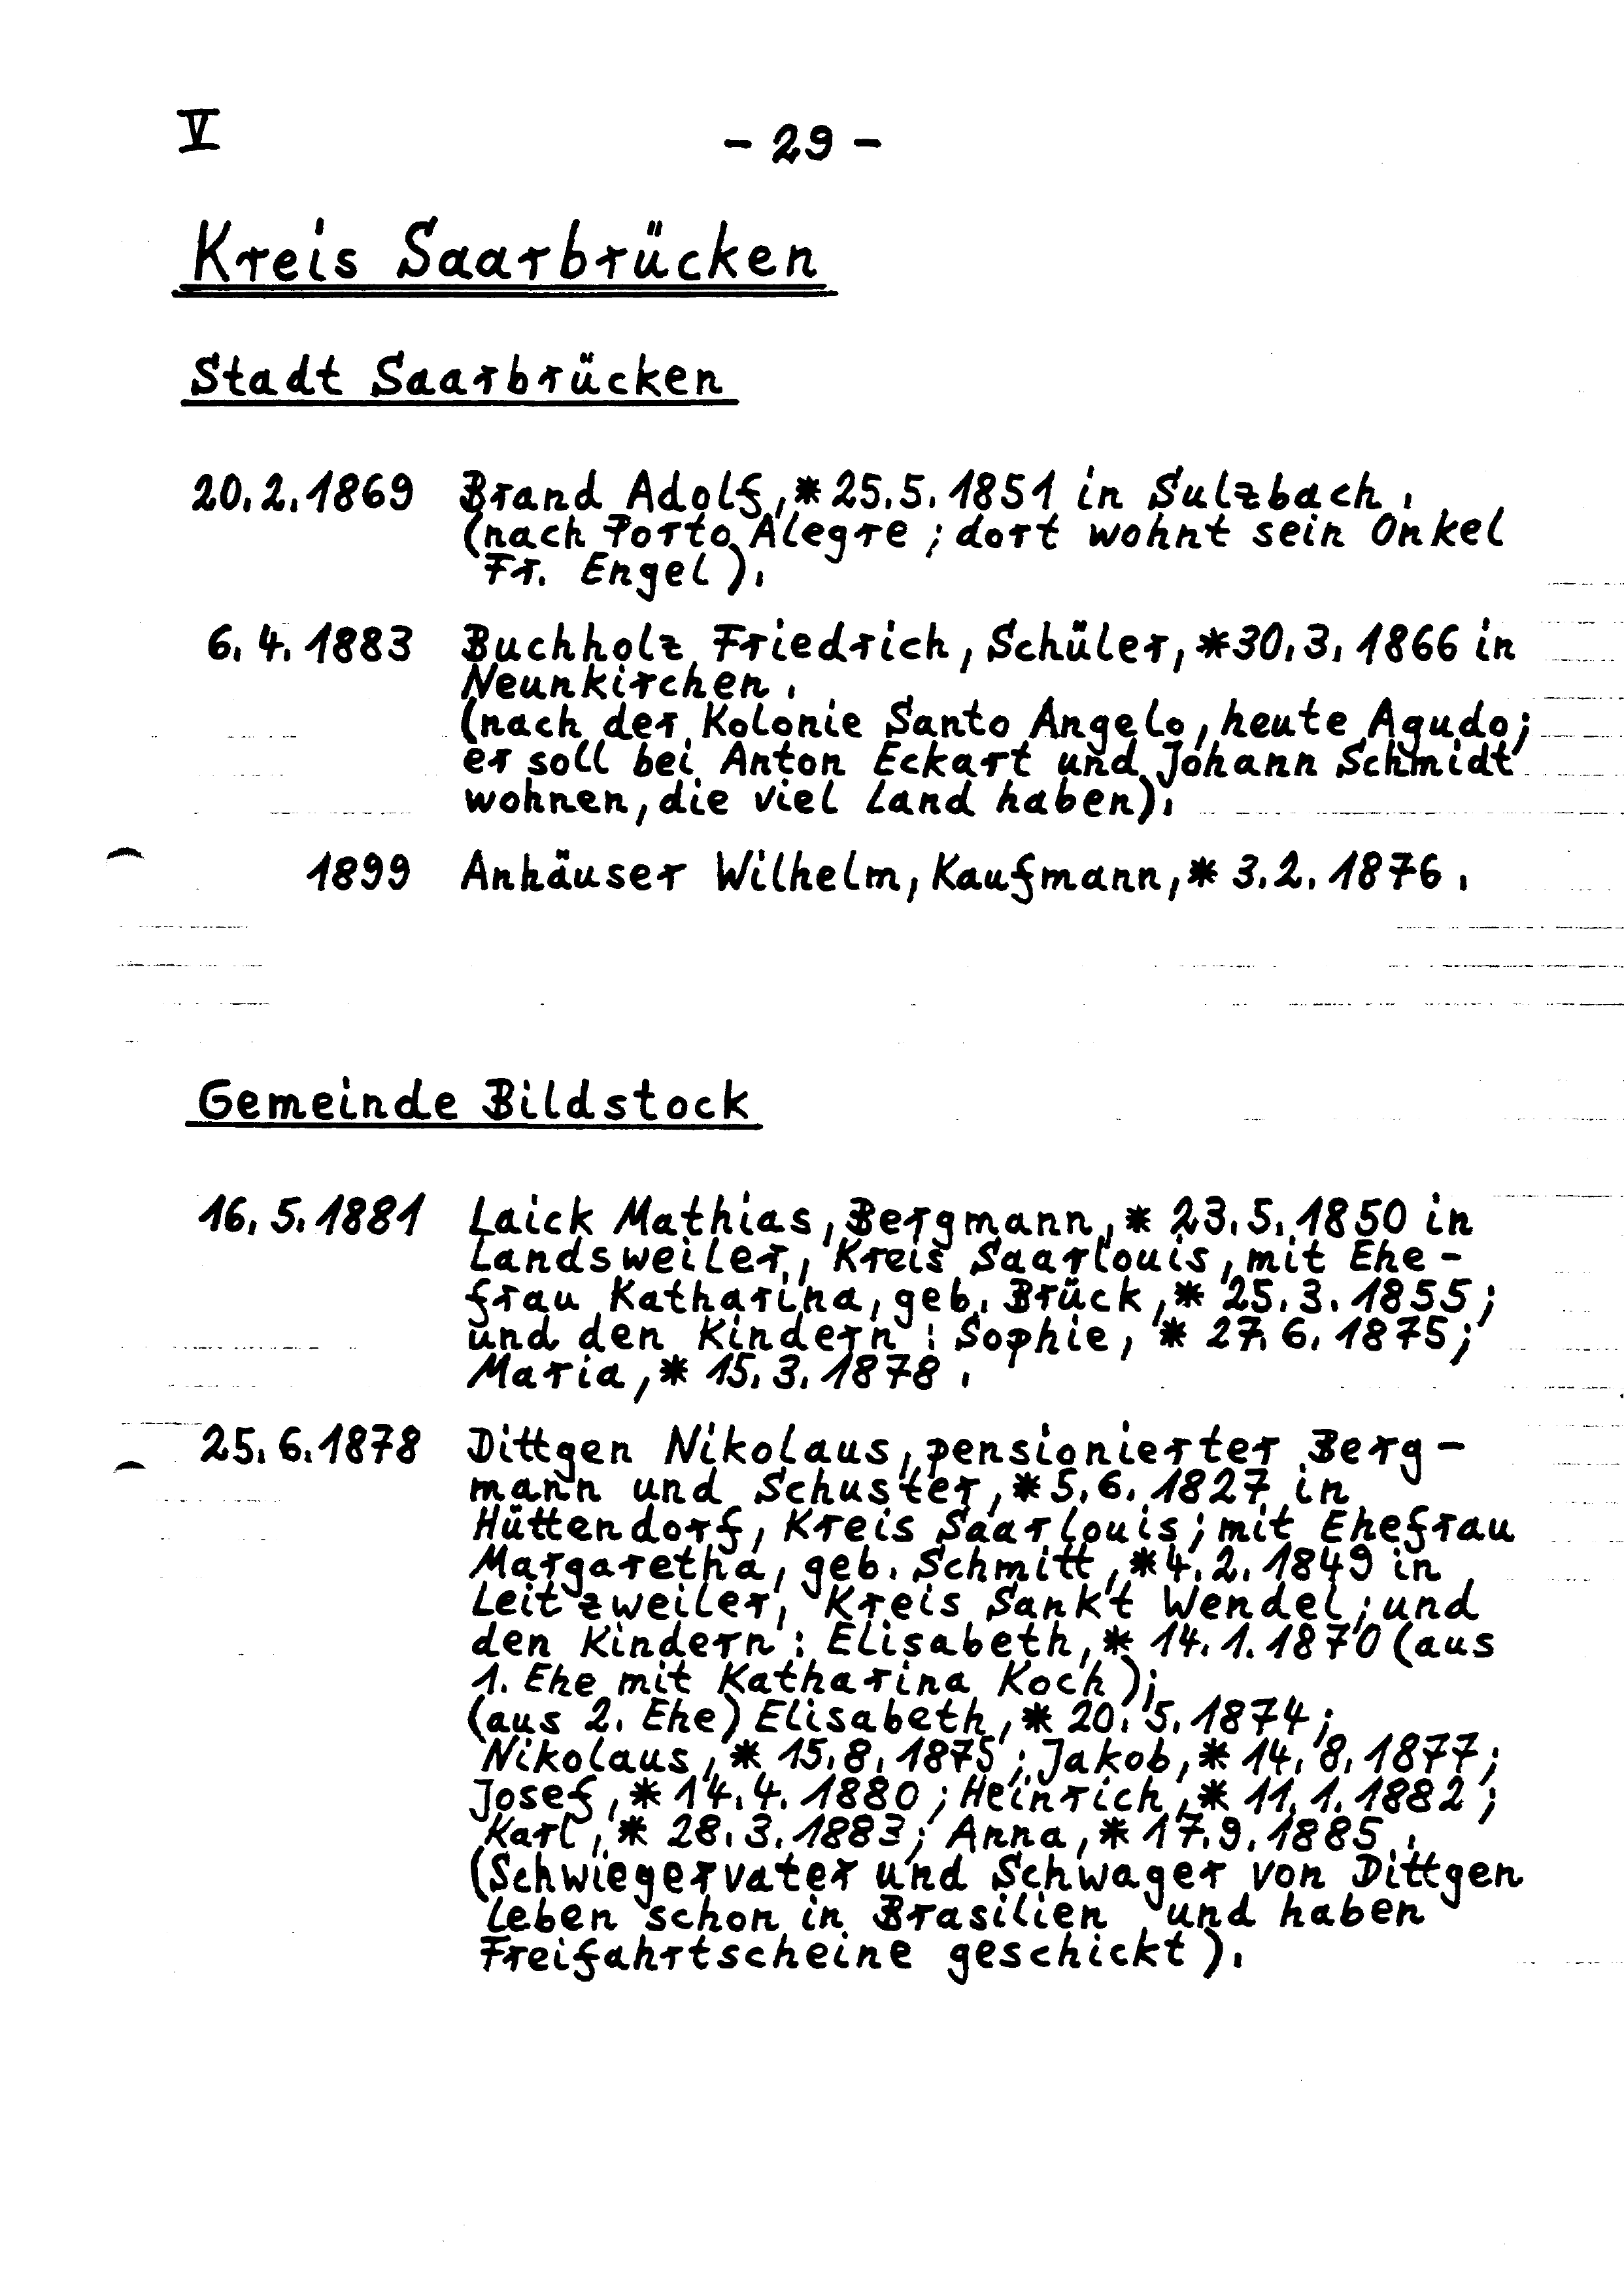 V
- 29 -
Kreis Saarbrücken
Stadt Saarbrücken
20.2.1869 Brand Adolf, * 25.5.1851 in Sulzbach.
(nach Porto Alegre ; dort wohnt sein Onkel
Fr. Engel).
6.4.1883 Buchholz Friedrich, Schüler, * 30.3.1866 in
Neunkirchen.
(nach der Kolonie Santo Angelo, heute Agudo;
er soll bei Anton Eckart und Johann Schmidt
wohnen, die viel Land haben).
1899 Anhäuser Wilhelm, Kaufmann, * 3.2.1876.
Gemeinde Bildstock
16.5.1881 Laick Mathias, Bergmann, * 23.5.1850 in
Landsweiler, Kreis Saarlouis, mit Ehe-
frau Katharina, geb. Brück, * 25.3.1855;
und den Kindern: Sophie, * 27.6.1875;
Maria, * 15.3.1878.
25.6.1878 Dittgen Nikolaus, pensionierter Berg-
mann und Schuster, * 5.6.1827 in
Hüttendorf, Kreis Saarlouis; mit Ehefrau
Margaretha, geb. Schmitt, * 4.2.1849 in
Leitzweiler, Kreis Sankt Wendel; und
den Kindern: Elisabeth, * 14.1.1870 (aus
1. Ehe mit Katharina Koch);
(aus 2. Ehe) Elisabeth, * 20.5.1874;
Nikolaus, * 15.8.1875; Jakob, * 14.8.1877;
Josef, * 14.4.1880; Heinrich, * 11.1.1882;
Karl, * 28.3.1883; Anna, * 17.9.1885.
(Schwiegervater und Schwager von Dittgen
leben schon in Brasilien und haben
Freifahrtscheine geschickt).